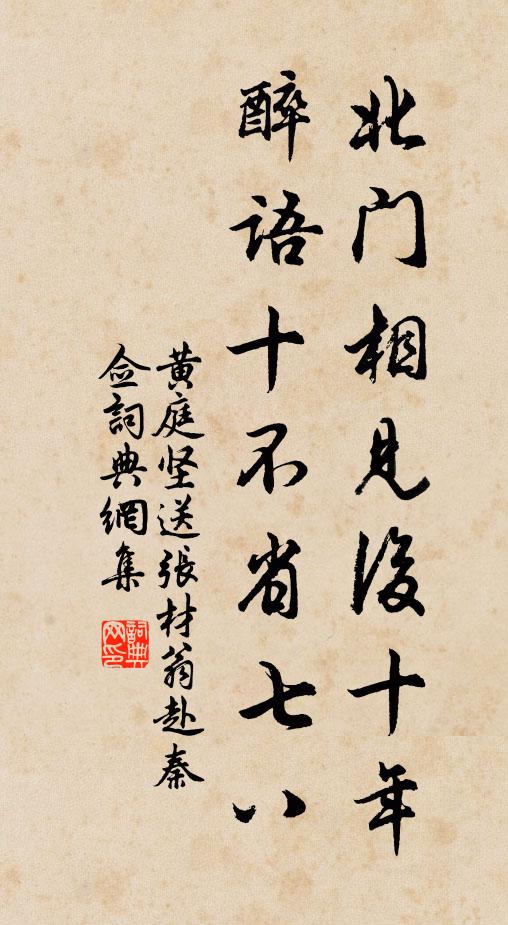 北门相見後十年
醉語十不省七八
黄庭坚送張材翁赴秦
佥詞典網集
詞典
网印